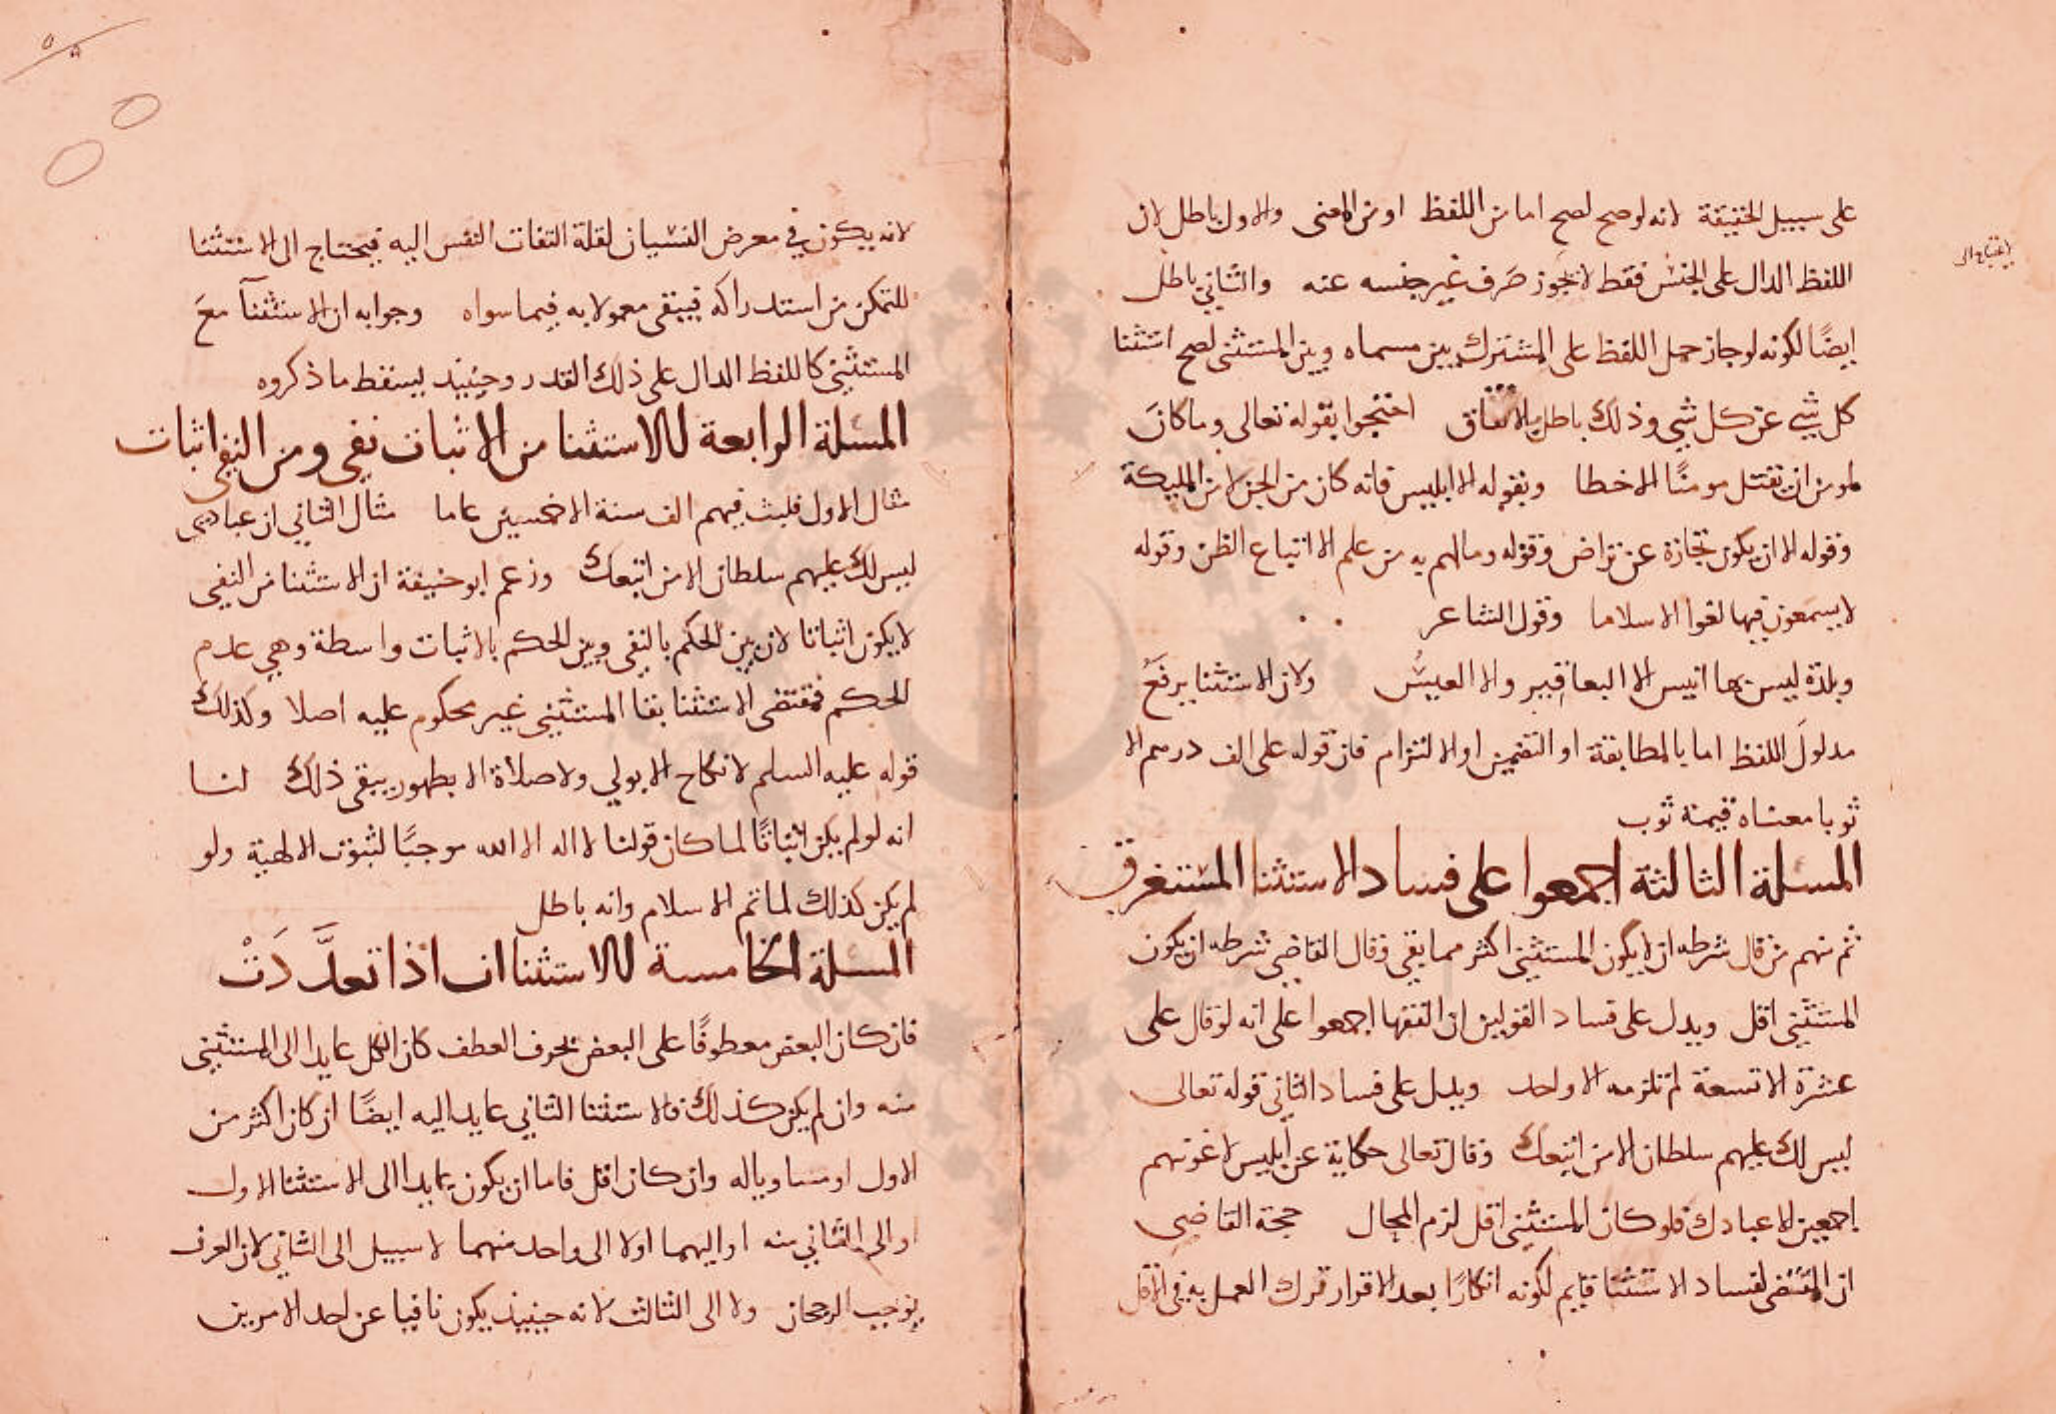 على سبيل الحقيقة لانه لو صح لصح اما من اللفظ او من المعنى والاول باطل لان
اللفظ الدال على الجنس فقط لا يجوز صَرف غير جنسه عنه والثاني باطل
ايضًا لكونه لو جاز حمل اللفظ على المشترك بين مسماه وبين المستثنى لصح استثنا
كل شي عن كل شي وذلك باطل بالاتفاق احتجوا بقوله تعالى وما كانَ
لمومن ان يقتل مومنًا الا خطا وبقوله الا ابليس فانه كان من الجن لا من المليكة
وقوله الا ان يكون تجارة عن تراض وقوله وما لهم به من علم الا اتباع الظن وقوله
لا يسمعون فيها لغوا الا سلاما وقول الشاعر
وبلدة ليس بها انيس الا اليعافير والا العيسُ ولان الاستثنا يرفعُ
مدلولَ اللفظ اما بالمطابقة او التضمين او الالتزام فان قوله على الف درهم الا
ثوبا معناه قيمة ثوب
المسلة الثالثة اجمعوا على فساد الاستثنا المستغرق
ثم منهم من قال شرطه ان لا يكون المستثنى اكثر مما بقي وقال القاضي شرطه ان يكون
المستثنى اقل ويدل على فساد القولين ان الفقها اجمعوا على انه لو قال على
عشرة الا تسعة لم تلزمه الا واحد ويدل على فساد الثاني قوله تعالى
ليس لك عليهم سلطان الا من اتبعك وقال تعالى حكاية عن ابليس لاغوينهم
اجمعين الا عبادك فلو كان المستثنى اقل لزم المحال حجة القاضي
ان المقتضى لفساد الاستثنا قايم لكونه انكارًا بعد الاقرار ترك العمل به في الاقل
لانه يكون في معرض النسيان لقلة التفات النفس اليه فيحتاج الى الاستثنا
للتمكن من استدراكه فيبقى معمولا به فيما سواه وجوابه ان الاستثنآ معَ
المستثنى كاللفظ الدال على ذلك القدر وحينيذ يسقط ما ذكروه
المسلة الرابعة للاستثنا من الاثبات نفى ومن النفى اثبات
مثال الاول فلبث فيهم الف سنة الا خمسين عاما مثال الثاني ان عبادى
ليس لك عليهم سلطان الا من اتبعك وزعم ابو حنيفة ان الاستثنا من النفى
لا يكون اثباتا لان بين الحكم بالنفى وبين الحكم بالاثبات واسطة وهي عدم
الحكم فمقتضى الاستثنا بقا المستثنى غير محكوم عليه اصلا وكذلك
قوله عليه السلم لا نكاح الا بولي ولا صلاة الا بطهور يبقى ذلك لنا
انه لو لم يكن اثباتًا لما كان قولنا لا اله الا الله موجبًا لثبوت الالهية ولو
لم يكن كذلك لما تم الاسلام وانه باطل
المسلة الخامسة للاستثناات اذا تعدَّدَتْ
فان كان البعض معطوفًا على البعض بحرف العطف كان الكل عايدا الى المستثنى
منه وان لم يكن كذلك فالاستثنا الثاني عايد اليه ايضًا ان كان اكثر من
الاول او مساويا له وان كان اقل فاما ان يكون عايدا الى الاستثنا الاول
او الى الثاني منه او اليهما او لا الى واحد منهما لا سبيل الى الثاني لان العرف
يوجب الرجحان ولا الى الثالث لانه حينيذ يكون نافيا عن احد الامرين